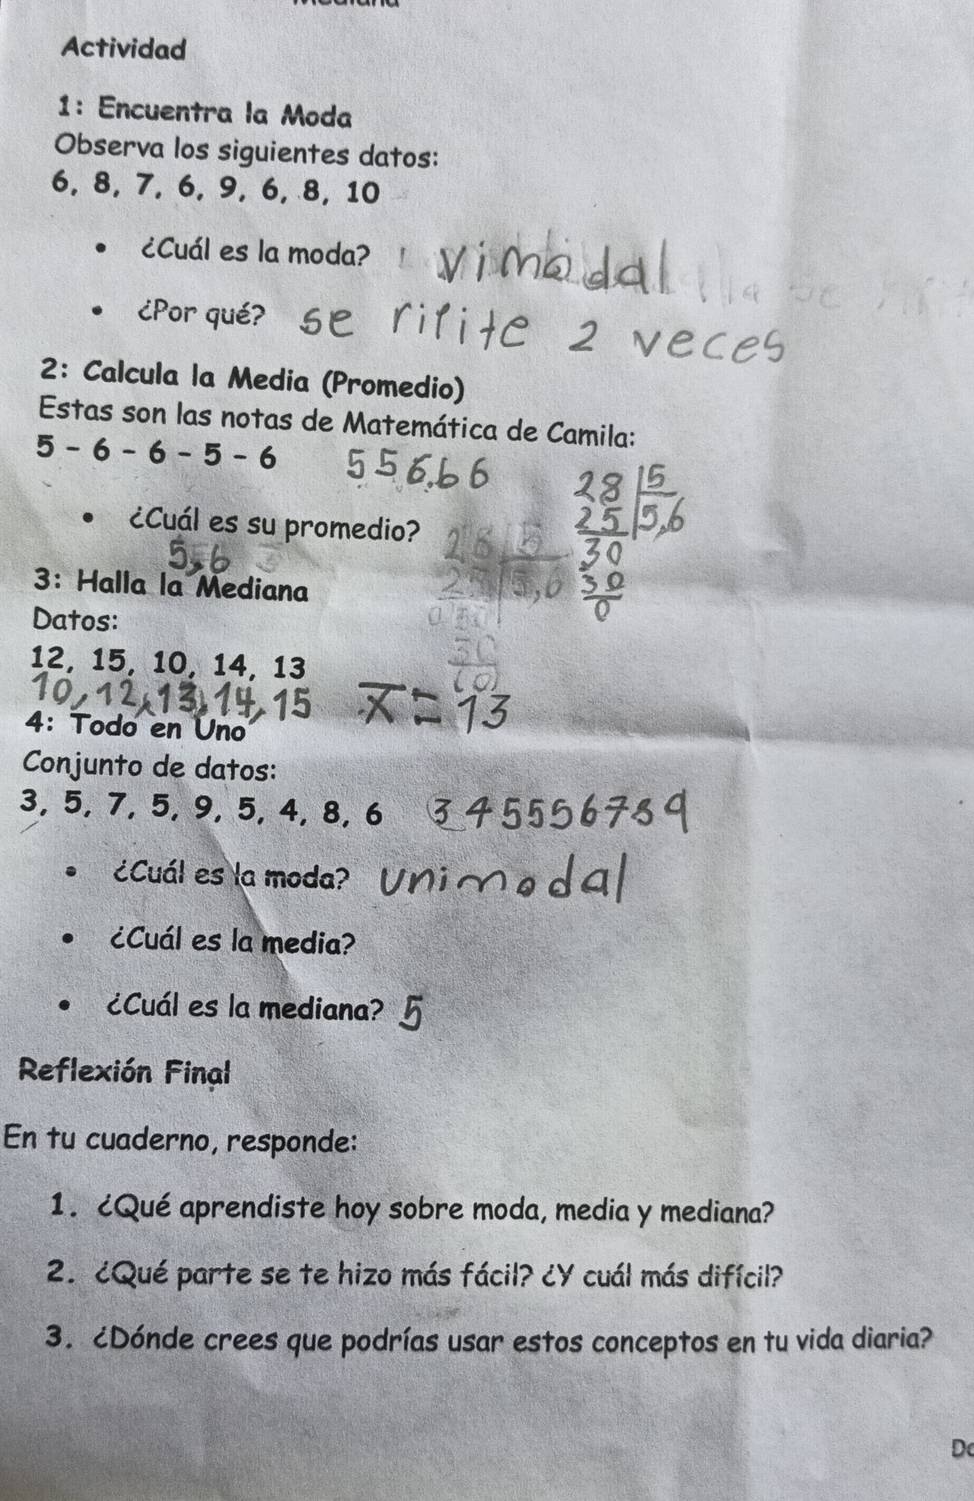 Actividad
1: Encuentra la Moda
Observa los siguientes datos:
6, 8, 7, 6, 9, 6, 8, 10
• ¿Cuál es la moda? Vimodal
• ¿Por qué? se ripite 2 veces
2: Calcula la Media (Promedio)
Estas son las notas de Matemática de Camila:
5 - 6 - 6 - 5 - 6 5 5 6.6 6
28 5
• ¿Cuál es su promedio? 25 5,6
30
5,6
30
0
3: Halla la Mediana
Datos:
12, 15, 10, 14, 13
10, 12, 13, 14, 15 x̅ = 13
4: Todo en Uno
Conjunto de datos:
3, 5, 7, 5, 9, 5, 4, 8, 6 3 4 5 5 5 6 7 8 9
• ¿Cuál es la moda? Unimodal
• ¿Cuál es la media?
• ¿Cuál es la mediana? 5
Reflexión Final
En tu cuaderno, responde:
1. ¿Qué aprendiste hoy sobre moda, media y mediana?
2. ¿Qué parte se te hizo más fácil? ¿Y cuál más difícil?
3. ¿Dónde crees que podrías usar estos conceptos en tu vida diaria?